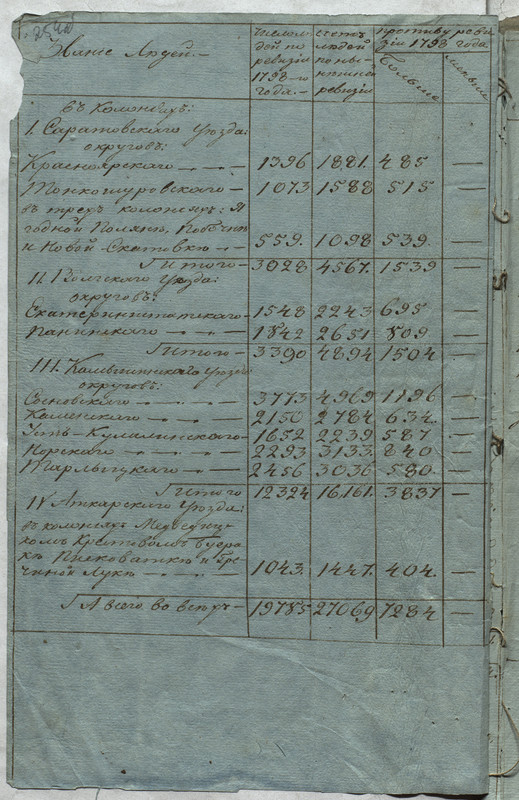 Званiе Людей.—
Число лю-
дей по
ревизiи
1798-го
года.—
счетъ
людей
по ны-
нешней
ревизiи
противу реви-
зiи 1798 года
больше
меньше
въ Колонiяхъ:
I. Саратовскаго уезда:
округовъ:
Красноярскаго — — 1396 1881. 485 —
Тонкошуровскаго — 1073 1588 515 —
въ трехъ колонiяхъ: Я
годной Поляне, Побочне
и Новой-Скатовке — 559. 1098 539. —
Итого — 3028 4567. 1539 —
II. Волгскаго уезда:
округовъ:
Екатериништатскаго — 1548 2243 695 —
Панинскаго — — 1842 2651 809 —
Итого — 3390 4894 1504 —
III. Камышинскаго уезда
округовъ:
Сосновскаго — — 3773 4969 1196 —
Каменскаго — — 2150 2784 634. —
Усть-Кулалинскаго — 1652 2239 587 —
Норскаго — — 2293 3133. 840 —
Иларлынскаго — 2456 3036 580. —
Итого 12324 16161. 3837 —
IV Аткарскаго уезда:
въ колонiяхъ Медведиц-
комъ Крестовомъ Буера-
ке Песковатке и Гре-
чинной Луке — — 1043. 1447. 404. —
А всего во всехъ — 19785 27069 7284 —